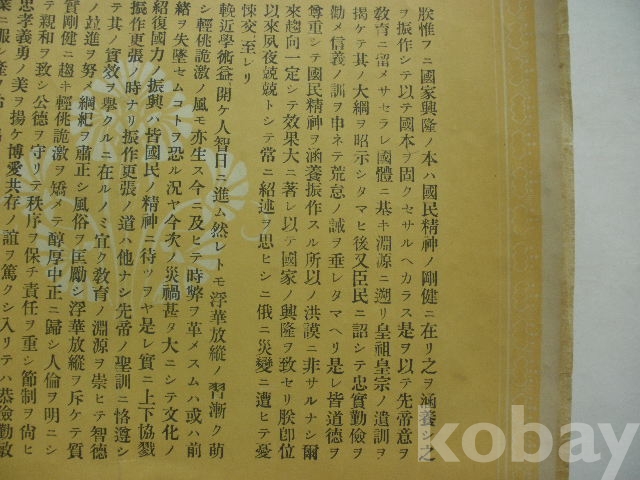 朕惟フニ國家興隆ノ本ハ國民精神ノ剛健ニ在リ之ヲ涵養シ之
ヲ振作シテ以テ國本ヲ固クセサルヘカラス是ヲ以テ先帝意ヲ
教育ニ留メサセラレ國體ニ基キ淵源ニ遡リ皇祖皇宗ノ遺訓ヲ
掲ケテ其ノ大綱ヲ昭示シタマヒ後又臣民ニ詔シテ忠實勤儉ヲ
勸メ信義ノ訓ヲ申ネテ荒怠ノ誡ヲ垂レタマヘリ是レ皆道德ヲ
尊重シテ國民精神ヲ涵養振作スル所以ノ洪謨ニ非サルナシ爾
來趨向一定シテ效果大ニ著レ以テ國家ノ興隆ヲ致セリ朕卽位
以來夙夜兢兢トシテ常ニ紹述ヲ思ヒシニ俄ニ災變ニ遭ヒテ憂
悚交至レリ
輓近學術益開ケ人智日ニ進ム然レトモ浮華放縱ノ習漸ク萌
シ輕佻詭激ノ風モ亦生ス今ニ及ヒテ時弊ヲ革メスムハ或ハ前
緒ヲ失墜セムコトヲ恐ル況ヤ今次ノ災禍甚タ大ニシテ文化ノ
紹復國力ノ振興ハ皆國民ノ精神ニ待ツヲヤ是レ實ニ上下協戮
振作更張ノ時ナリ振作更張ノ道ハ他ナシ先帝ノ聖訓ニ恪遵シ
テ其ノ實效ヲ擧クルニ在ルノミ宜ク教育ノ淵源ヲ崇ヒテ智德
ノ竝進ヲ努メ綱紀ヲ肅正シ風俗ヲ匡勵シ浮華放縱ヲ斥ケテ質
實剛健ニ趨キ輕佻詭激ヲ矯メテ醇厚中正ニ歸シ人倫ヲ明ニシ
テ親和ヲ致シ公德ヲ守リテ秩序ヲ保チ責任ヲ重シ節制ヲ尙ヒ
忠孝義勇ノ美ヲ揚ケ博愛共存ノ誼ヲ篤クシ入リテハ恭儉勤敏
業ニ服シ產ヲ治
kobay